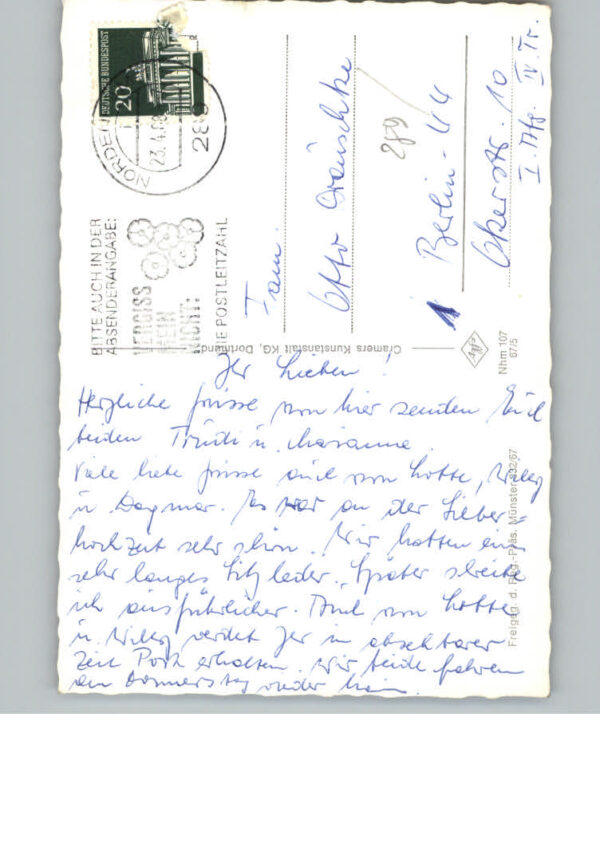 DEUTSCHE BUNDESPOST
20
NORDEN
23.4.68
288
BITTE AUCH IN DER
ABSENDERANGABE:
VERGISS
MEIN
NICHT:
DIE POSTLEITZAHL
Fam.
Otto
289
1 Berlin-44
Okerstr. 10
I. Aufg. IV Tr.
Cramers Kunstanstalt KG, Dortmund
Nhm 107
67/5
Freigeg. d. Reg.-Präs. Münster 832/67
Ihr Lieben!
Herzliche Grüsse von hier senden Euch
beiden Trudi u. Marianne.
Viele liebe Grüsse auch von Lotte, Willy
u. Dagmar. Es war an der Silber=
hochzeit sehr schön. Wir hatten ein
sehr langes Sitzleder. Später schreibe
ich ausführlicher. Auch von Lotte
u. Willy werdet Ihr in absehbarer
Zeit Post erhalten. Wir beide fahren
am Donnerstag wieder heim.